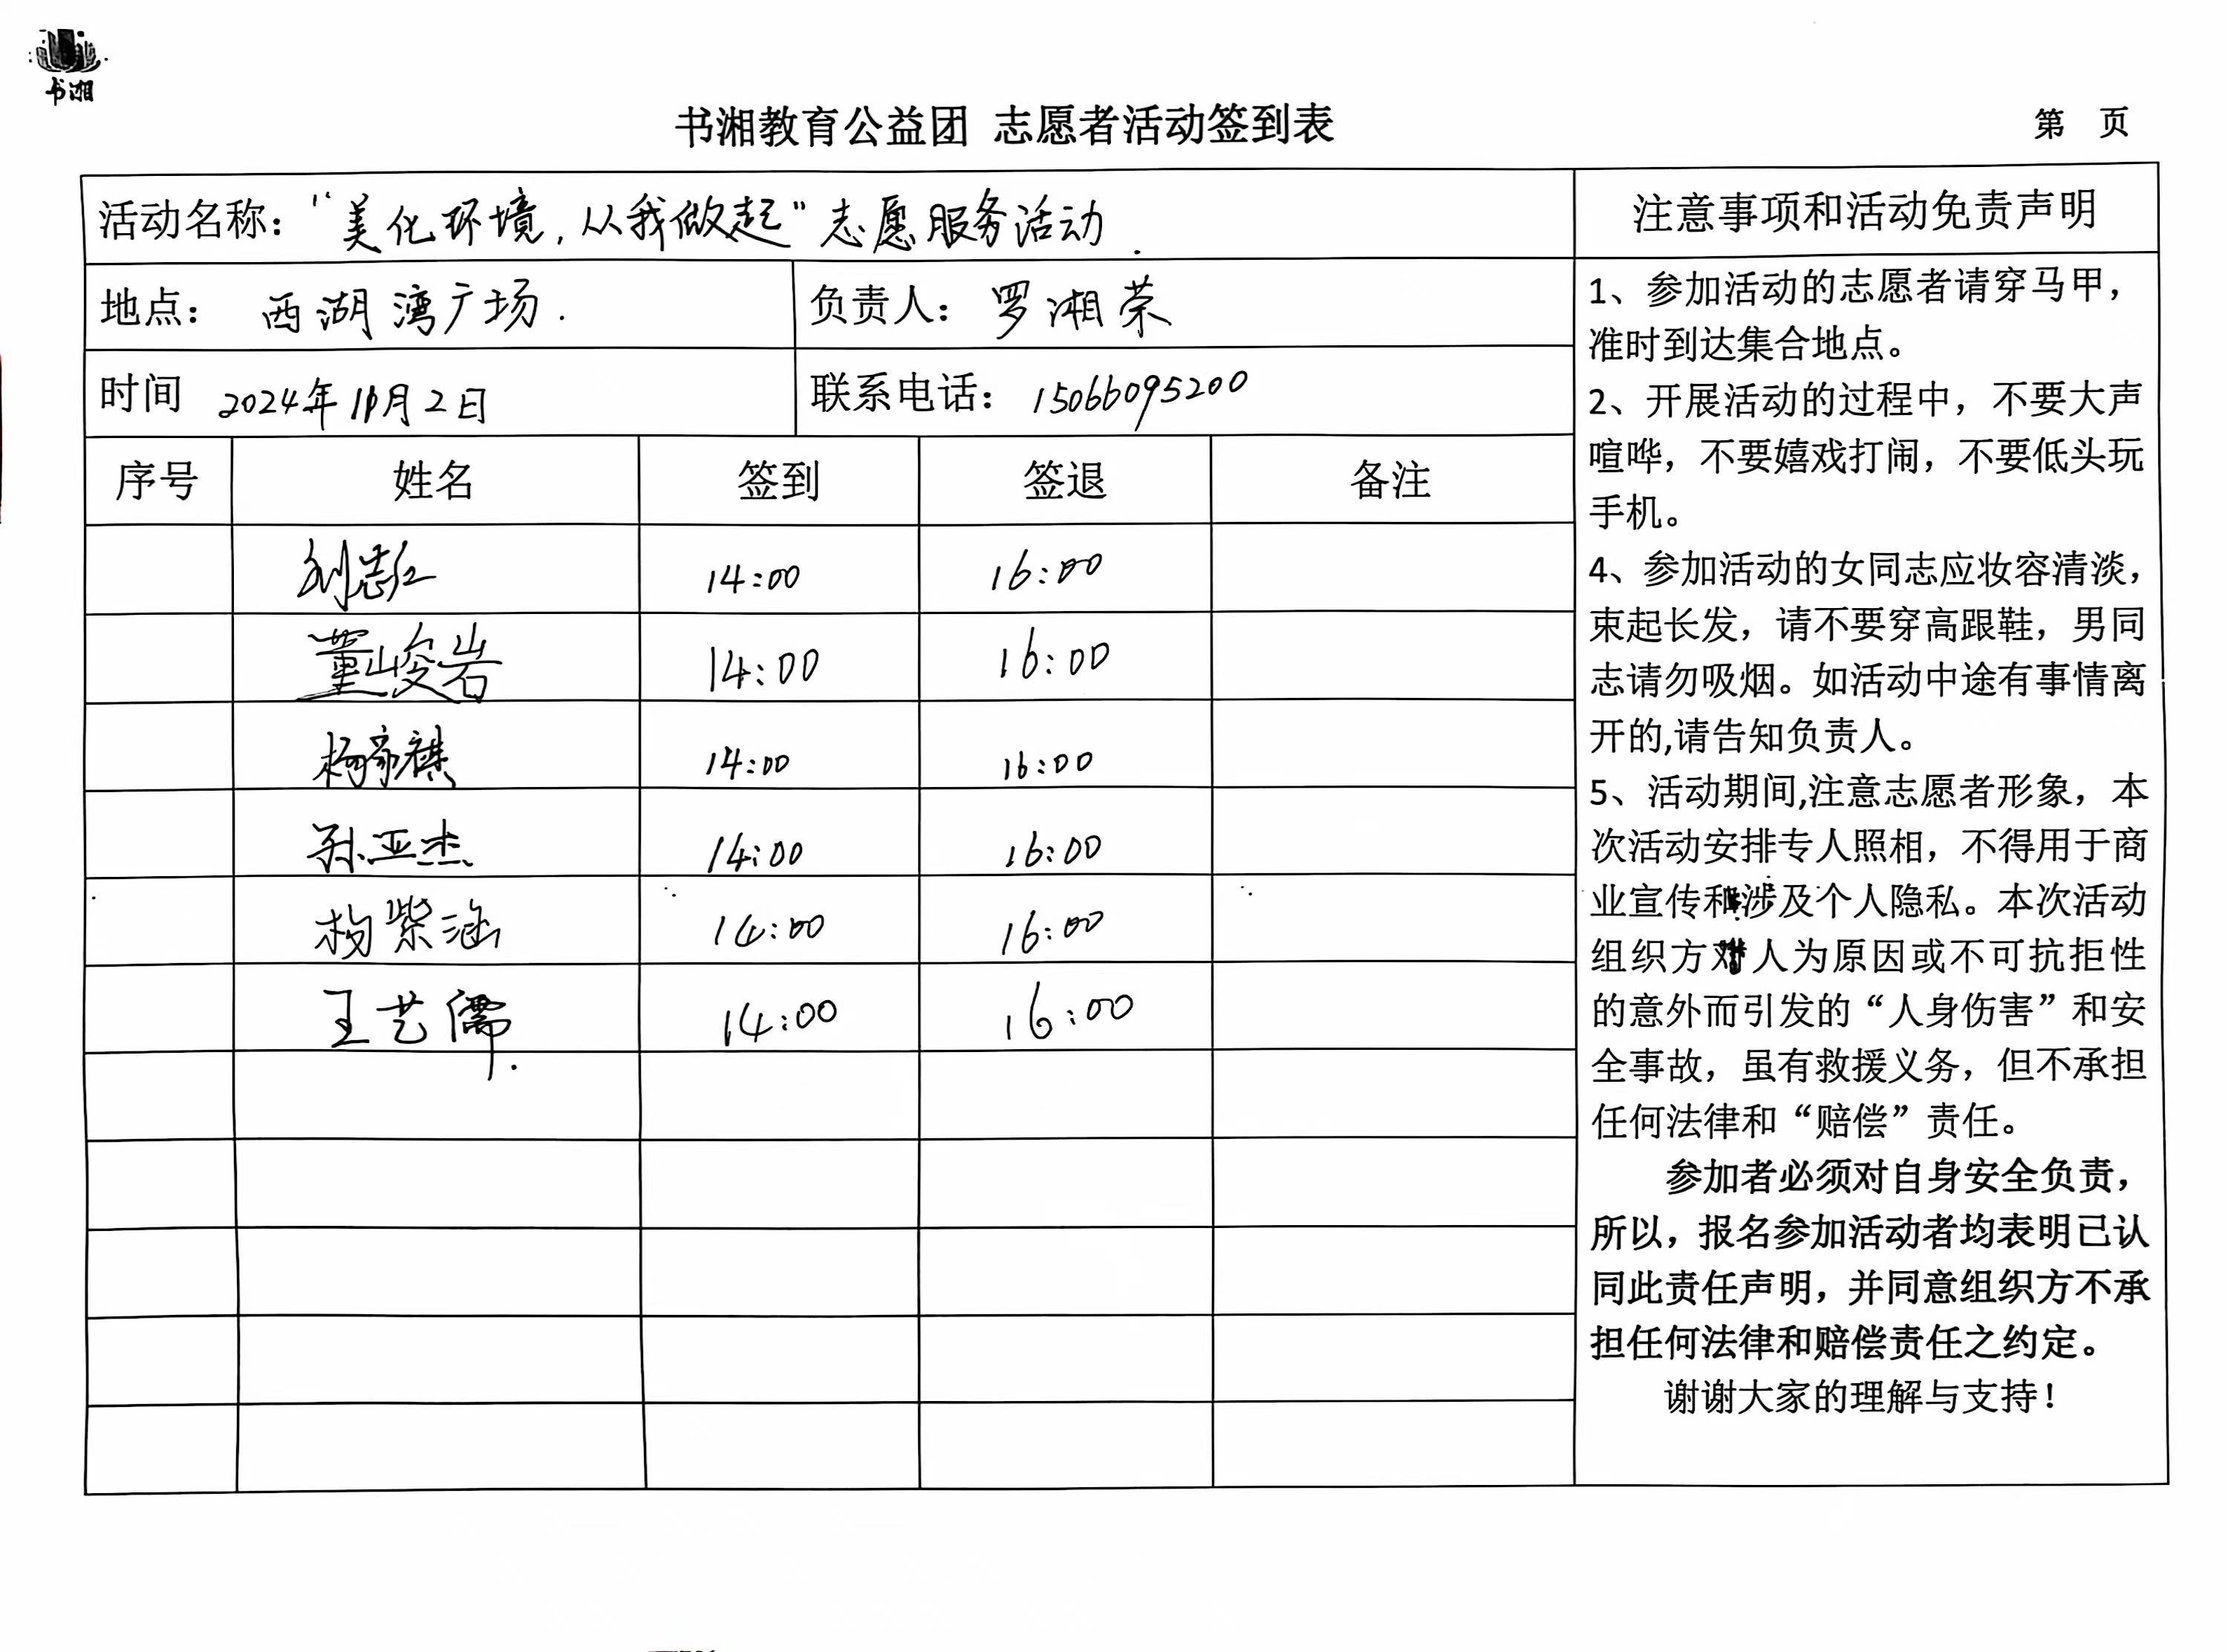 书湘
书湘教育公益团 志愿者活动签到表
第 页
活动名称："美化环境，从我做起"志愿服务活动.
注意事项和活动免责声明
地点：西湖湾广场.
负责人：罗湘荣
时间 2024年 月2日
联系电话：15066095200
序号 姓名 签到 签退 备注
刘志红 14:00 16:00
董峻岩 14:00 16:00
杨家祺 14:00 16:00
孙亚杰 14:00 16:00
杨紫涵 14:00 16:00
王艺儒. 14:00 16:00
1、参加活动的志愿者请穿马甲，
准时到达集合地点。
2、开展活动的过程中，不要大声
喧哗，不要嬉戏打闹，不要低头玩
手机。
4、参加活动的女同志应妆容清淡，
束起长发，请不要穿高跟鞋，男同
志请勿吸烟。如活动中途有事情离
开的,请告知负责人。
5、活动期间,注意志愿者形象，本
次活动安排专人照相，不得用于商
业宣传和涉及个人隐私。本次活动
组织方对人为原因或不可抗拒性
的意外而引发的“人身伤害”和安
全事故，虽有救援义务，但不承担
任何法律和“赔偿”责任。
参加者必须对自身安全负责，
所以，报名参加活动者均表明已认
同此责任声明，并同意组织方不承
担任何法律和赔偿责任之约定。
谢谢大家的理解与支持！